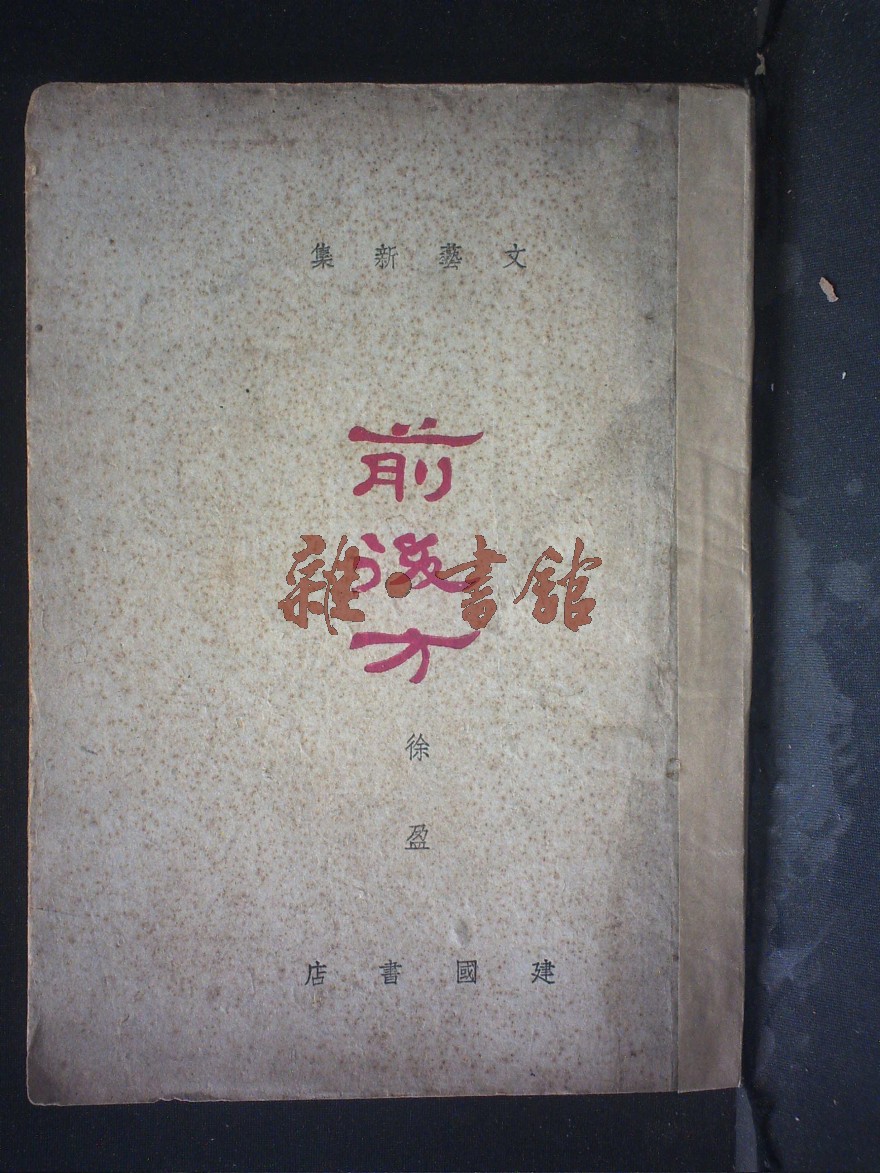 文藝新集
前後方
雜·書館
徐盈
建國書店